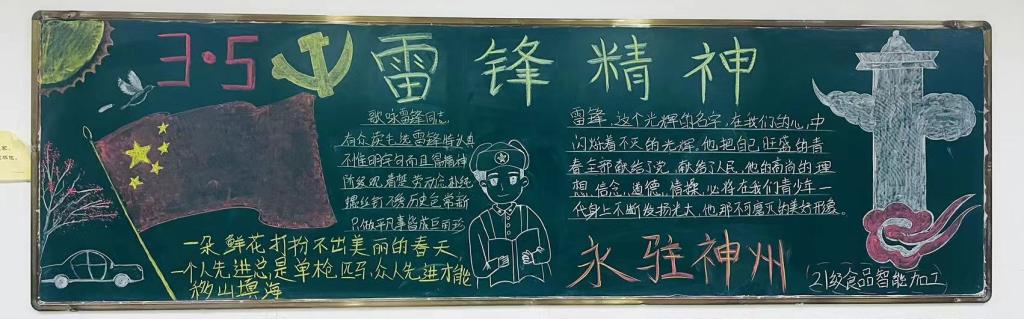 3·5
雷锋精神
歌咏雷锋同志
有众读毛选雷锋特认真
不惟明字句而且得精神
阶级观清楚劳动念
螺丝钉不锈历史色常新
只做平凡事皆成巨丽珍
雷锋，这个光辉的名字，在我们的心中
闪烁着不灭的光辉。他把自己旺盛的青
春全部献给了党，献给了人民，他的高尚的理
想，信念，道德，情操，必将在我们青少年一
代身上不断发扬光大，他那不可磨灭的美好形象。
永驻神州
一朵鲜花打扮不出美丽的春天，
一个人先进总是单枪匹马，众人先进才能
移山填海
21级食品智能加工